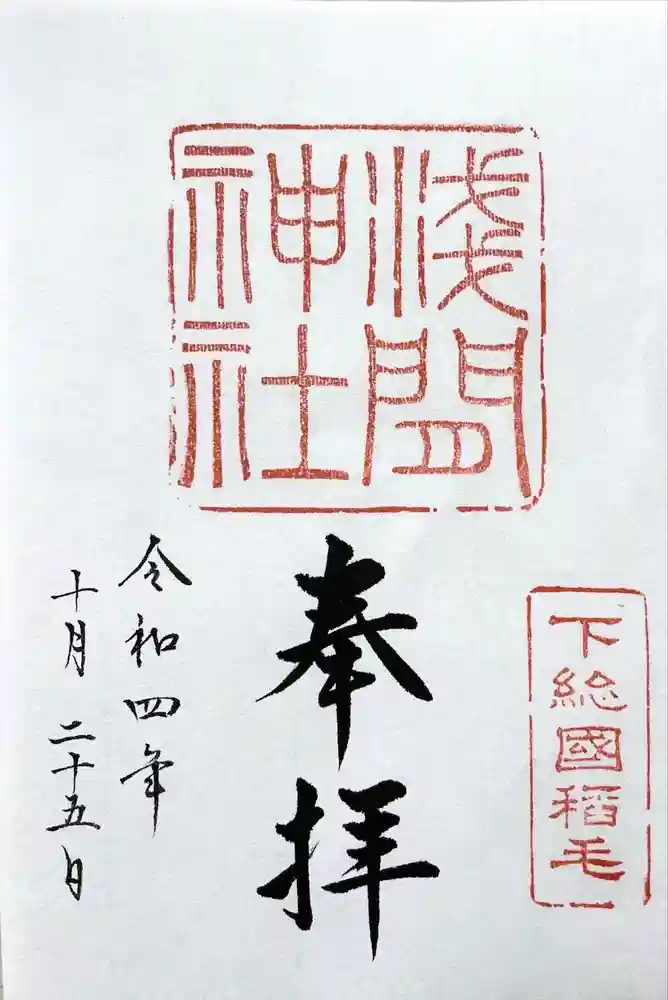 淺間
神社
下総國稲毛
奉拝
令和四年
十月二十五日